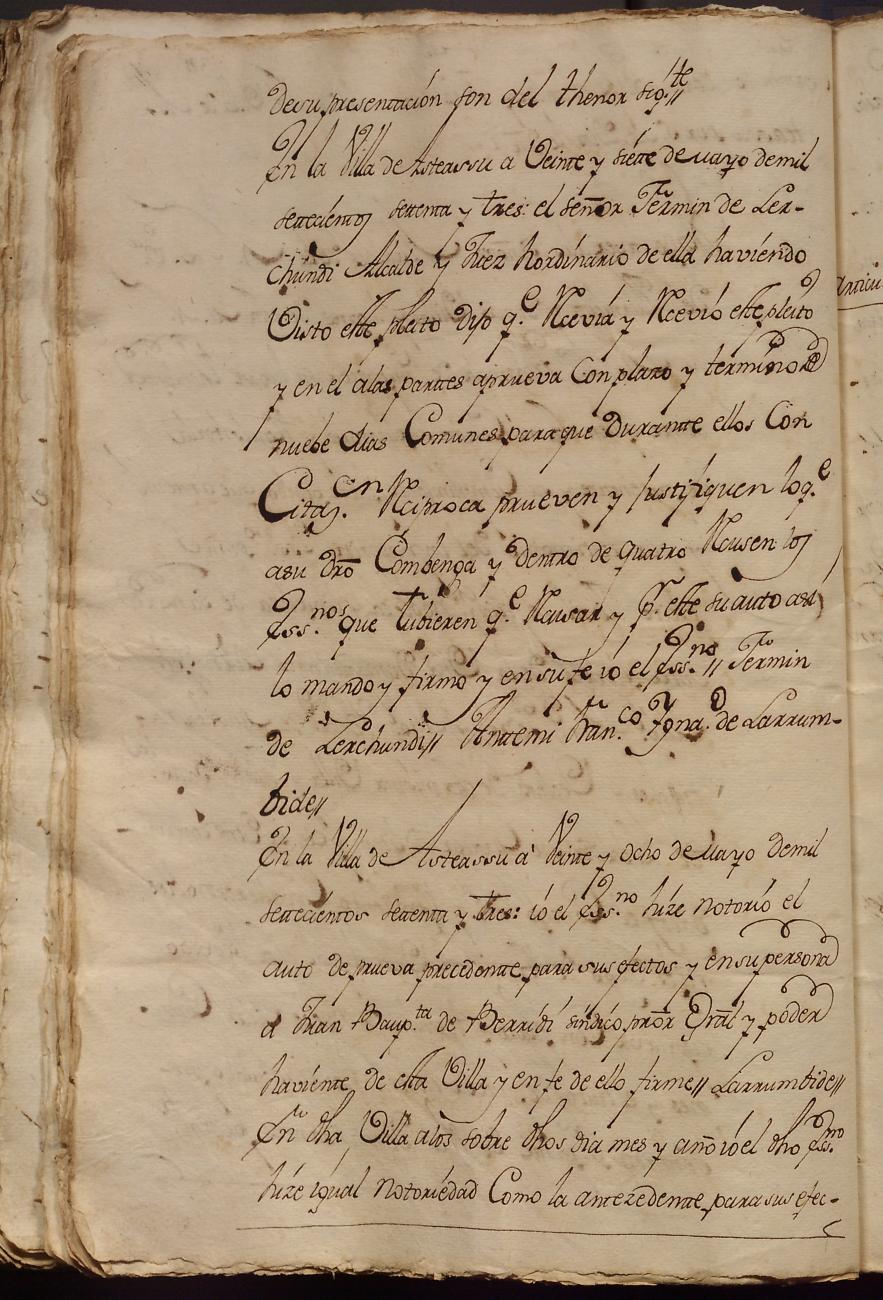 desu presentación son del thenor sigte//
En la Villa de Asteassu a Veinte y siete de mayo demil
settecientos settenta y tres: el señor Fermin de Ler-
chundi Alcalde y Juez hordinario de ella haviendo
Visto este pleito dijo q.e Recevia y Recevió este pleito
y en el alas partes aprueva con plazo y termino de
nuebe dias Comunes para que Durante ellos Con
Citaz.en Reciproca prueven y Justifiquen loq.e
asu dro Combenga y dentro de quatro Recusen los
Ess.nos que tubieren q.e Recusar y pr este su auto asi
lo mando y firmo y en su fe io el Ess.no // Fermin
de Lerchundi// Antemi Fran.co Ygna.o de Larrum-
bide//
En la Villa de Asteassu a Veinte y Ocho de mayo demil
settecientos setenta y tres: io el Ess.no hize notorio el
auto de prueva precedente para sus efectos y en su persona
a Juan Baup.ta de Berridi sindico pror Gral y poder
haviente de esta Villa y en fe de ello firme// Larrumbide//
En dha Villa alos sobre dhos dia mes y año io el dho Ess.no
hize igual Notoriedad Como la antezedente para sus efec-